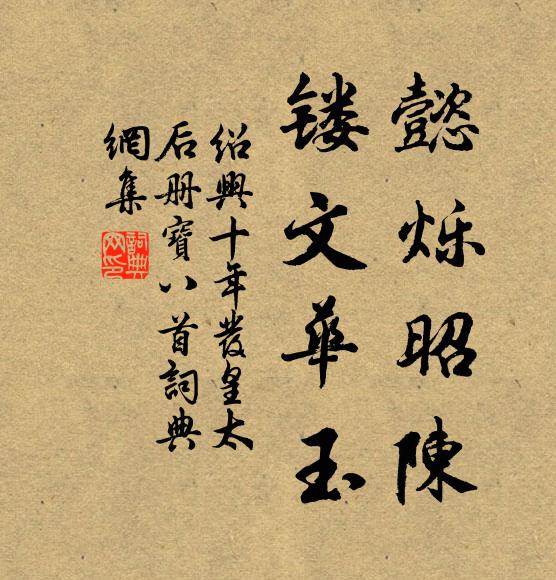 懿烁昭陳
镂文華玉
紹興十年發皇太
后册寶八首詞典
網集
詞典網印